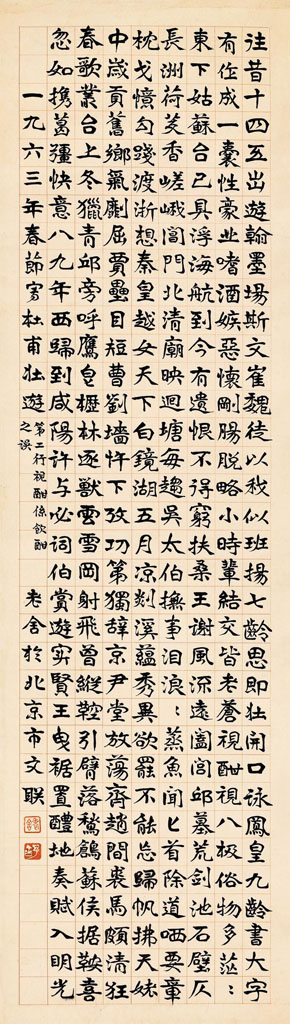 往昔十四五出遊翰墨場斯文崔魏徒以我似班揚七齡思即壮開口詠鳳皇九齡書大字
有作成一囊性豪业嗜酒嫉惡懷剛腸脫略小時輩結交皆老蒼視酣視八極俗物多茫:
東下姑蘇台已具浮海航到今有遺恨不得窮扶桑王謝風流遠闔閭邱墓荒剑池石壁仄
長洲荷芰香嵯峨閶門北清廟映迴塘每趨吳太伯撫事泪浪:蒸魚聞匕首除道哂要章
枕戈憶勾踐渡浙想秦皇越女天下白鏡湖五月凉剡溪蘊秀異欲罷不能忘歸帆拂天姥
中歲貢舊鄉氣劘屈賈壘目短曹劉墻忤下攷功第獨辭京尹堂放蕩齊趙間裘馬頗清狂
春歌叢台上冬獵青邱旁呼鷹皂櫪林逐獸雲雪岡射飛曾縱鞚引臂落鶖鶬蘇侯据鞍喜
忽如携葛彊快意八九年西歸到咸陽許与必词伯賞遊实賢王曳裾置醴地奏賦入明光
一九六三年春節寫杜甫壮遊
第二行視酣係飲酣
之误
老舍於北京市文联